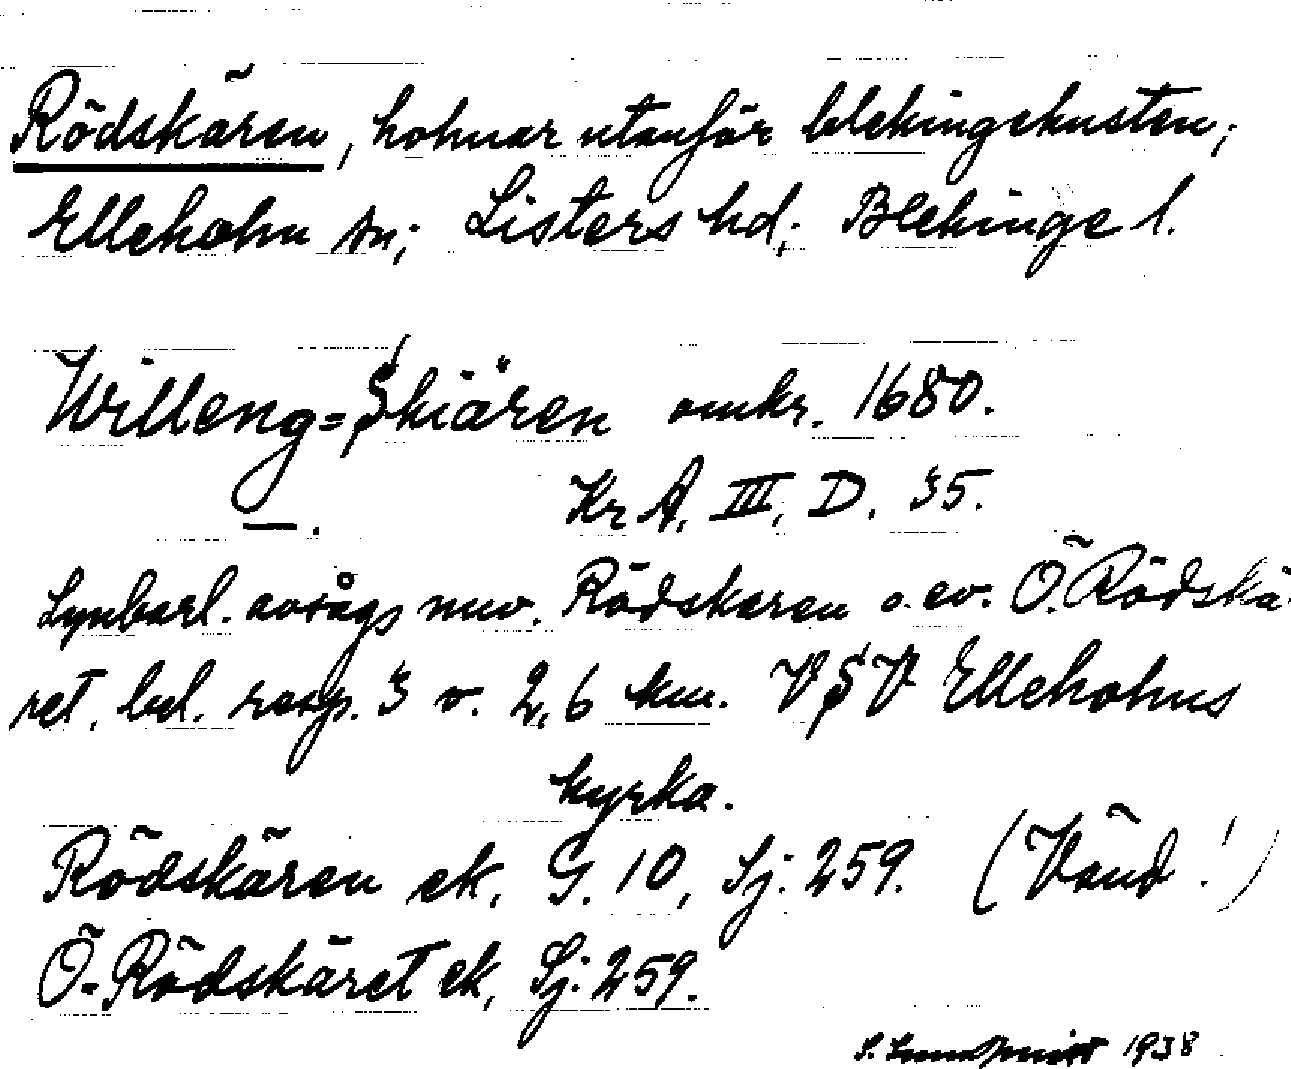 Rödskären, holmar utanför blekingekusten;
Elleholm sn; Listers hd; Blekinge l.
Willeng=Skiären omkr. 1680.
KrA, III, D. 35.
Synbarl. avsågs nuv. Rödskären o. ev. Ö. Rödskä-
ret, bel. resp. 3 o. 2,6 km. VSV Elleholms
kyrka.
Rödskären ek, G. 10, Sj: 259. (Vänd!)
Ö. Rödskäret ek, Sj: 259.
1938